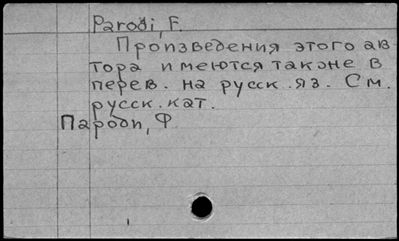 Parodi, F.
Произведения этого ав
тора имеются также в
перев. на русск. яз. См.
русск. кат.
Пароди, Ф